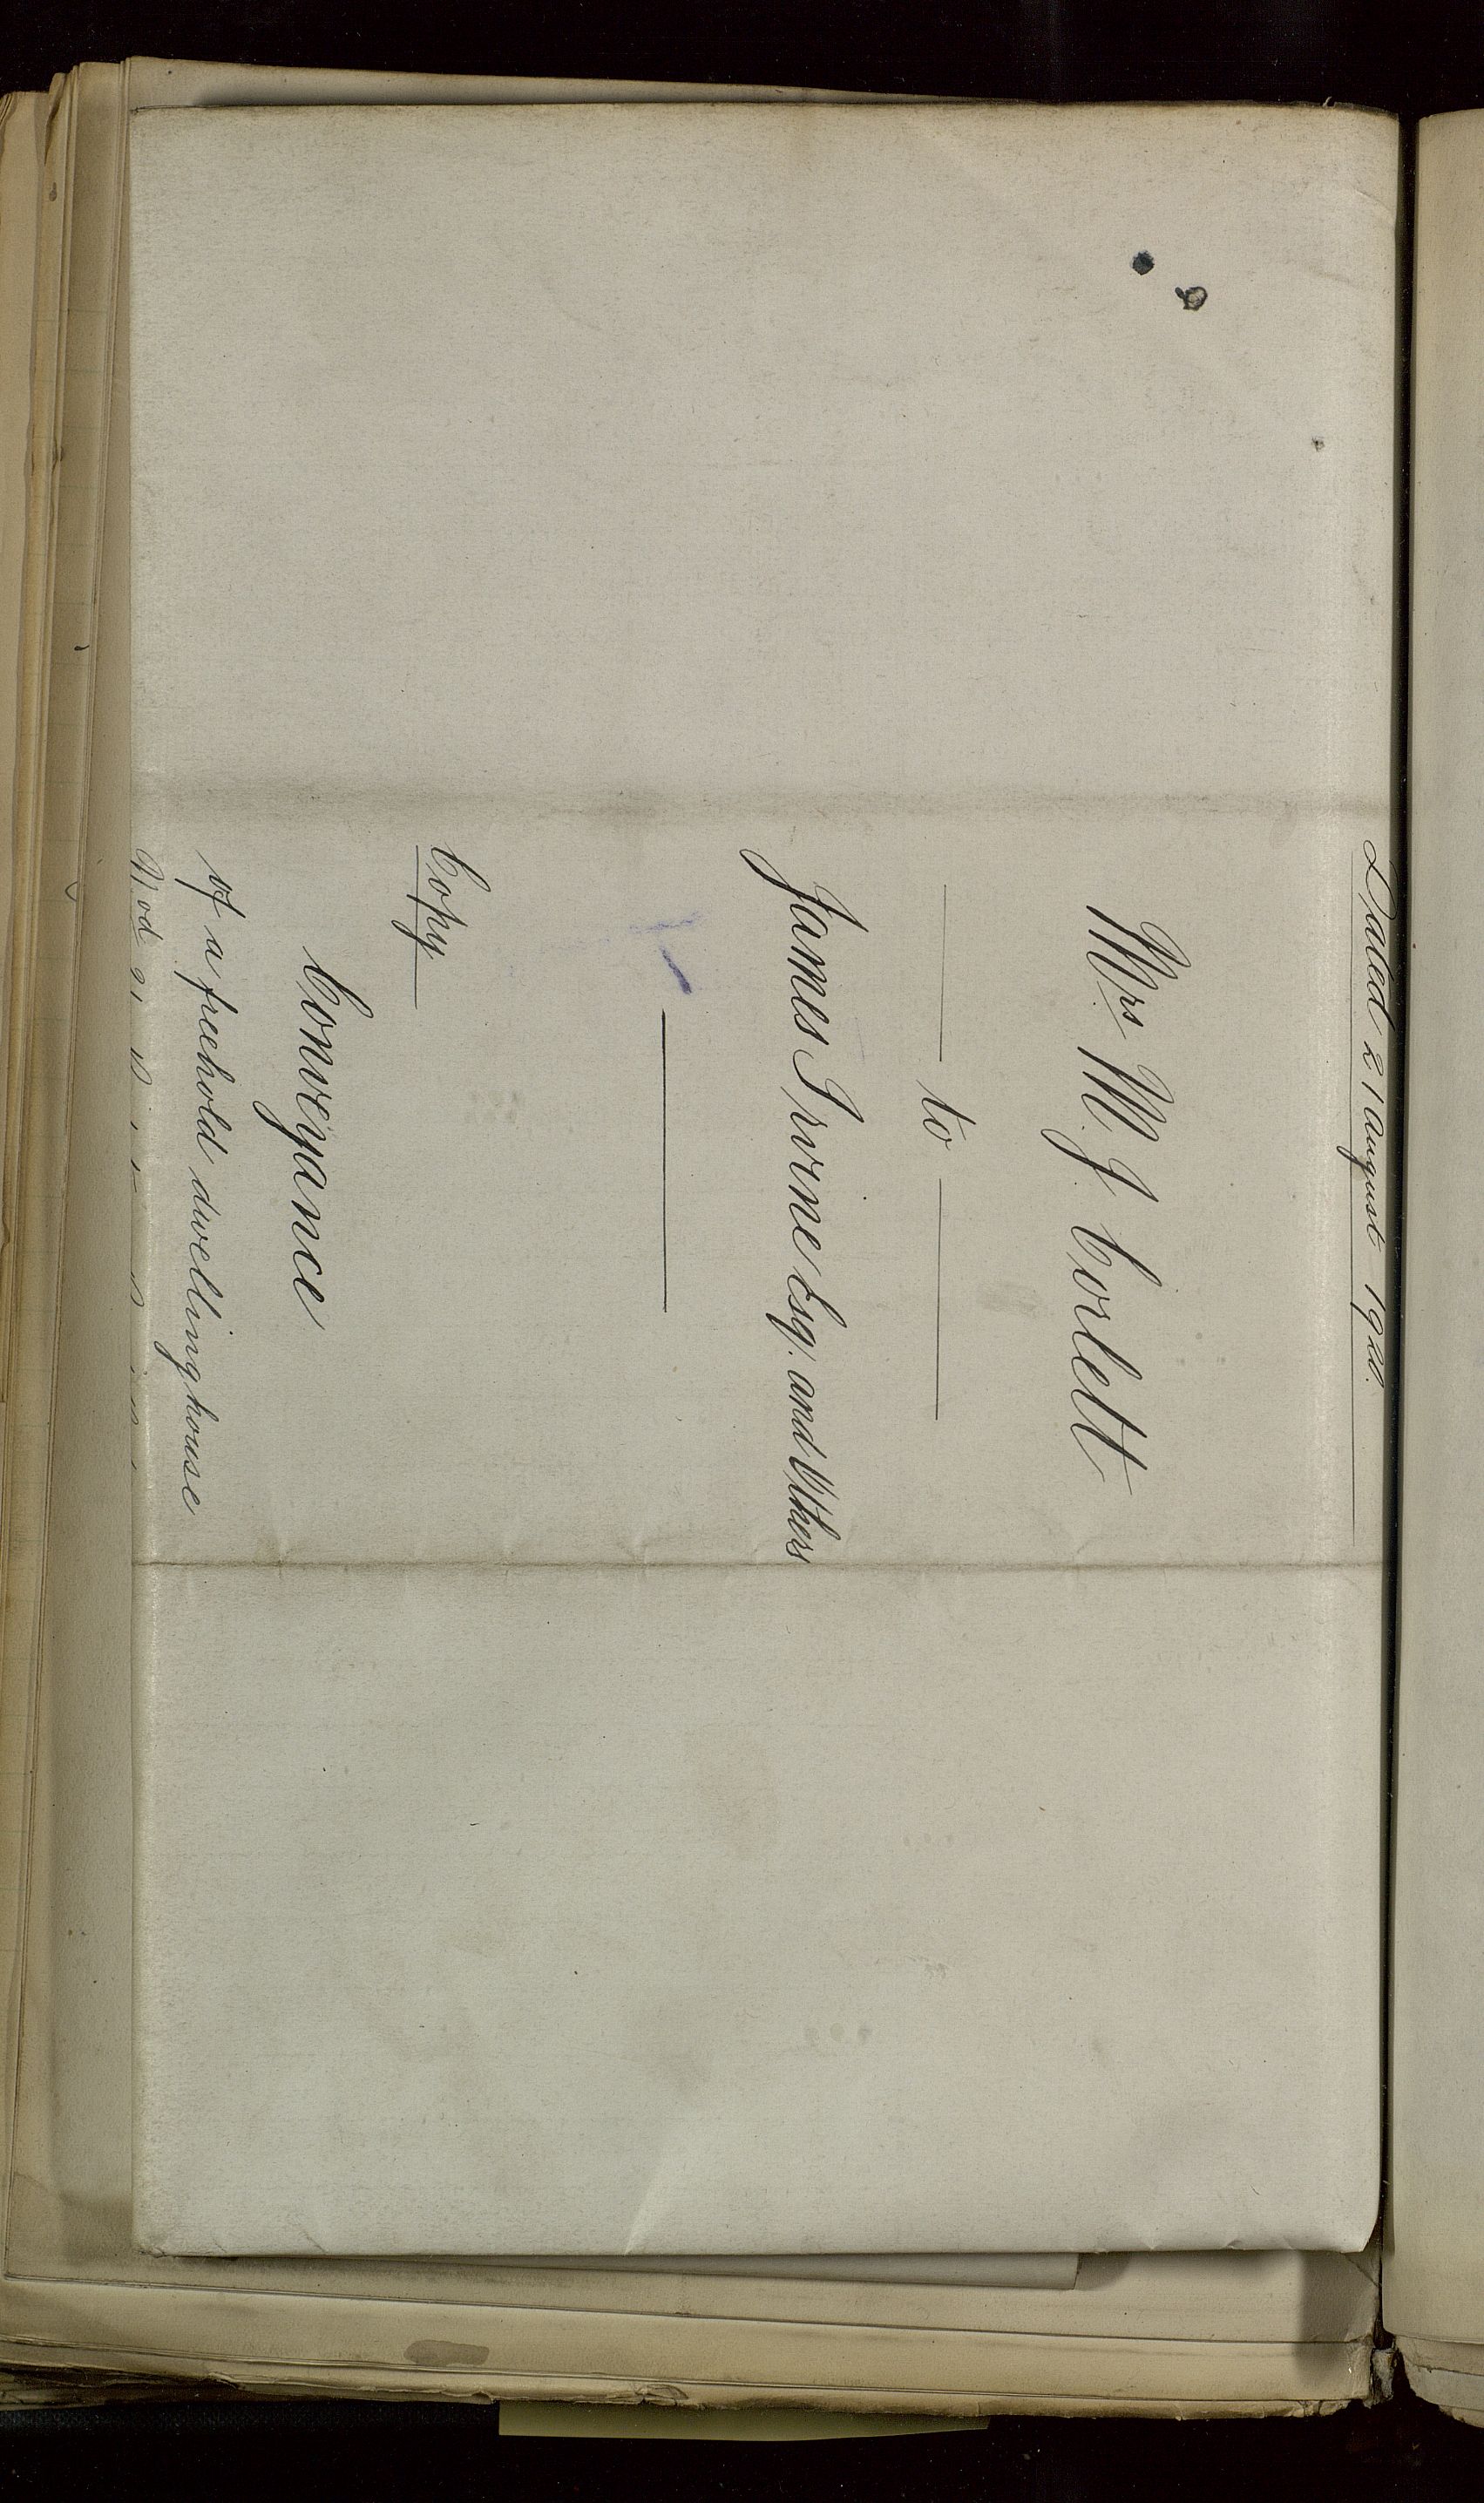 Dated 21 August 1920.
Mrs M. J. Corlett
to
James Irvine Esq. and Others
Copy
Conveyance
of a freehold dwellinghouse